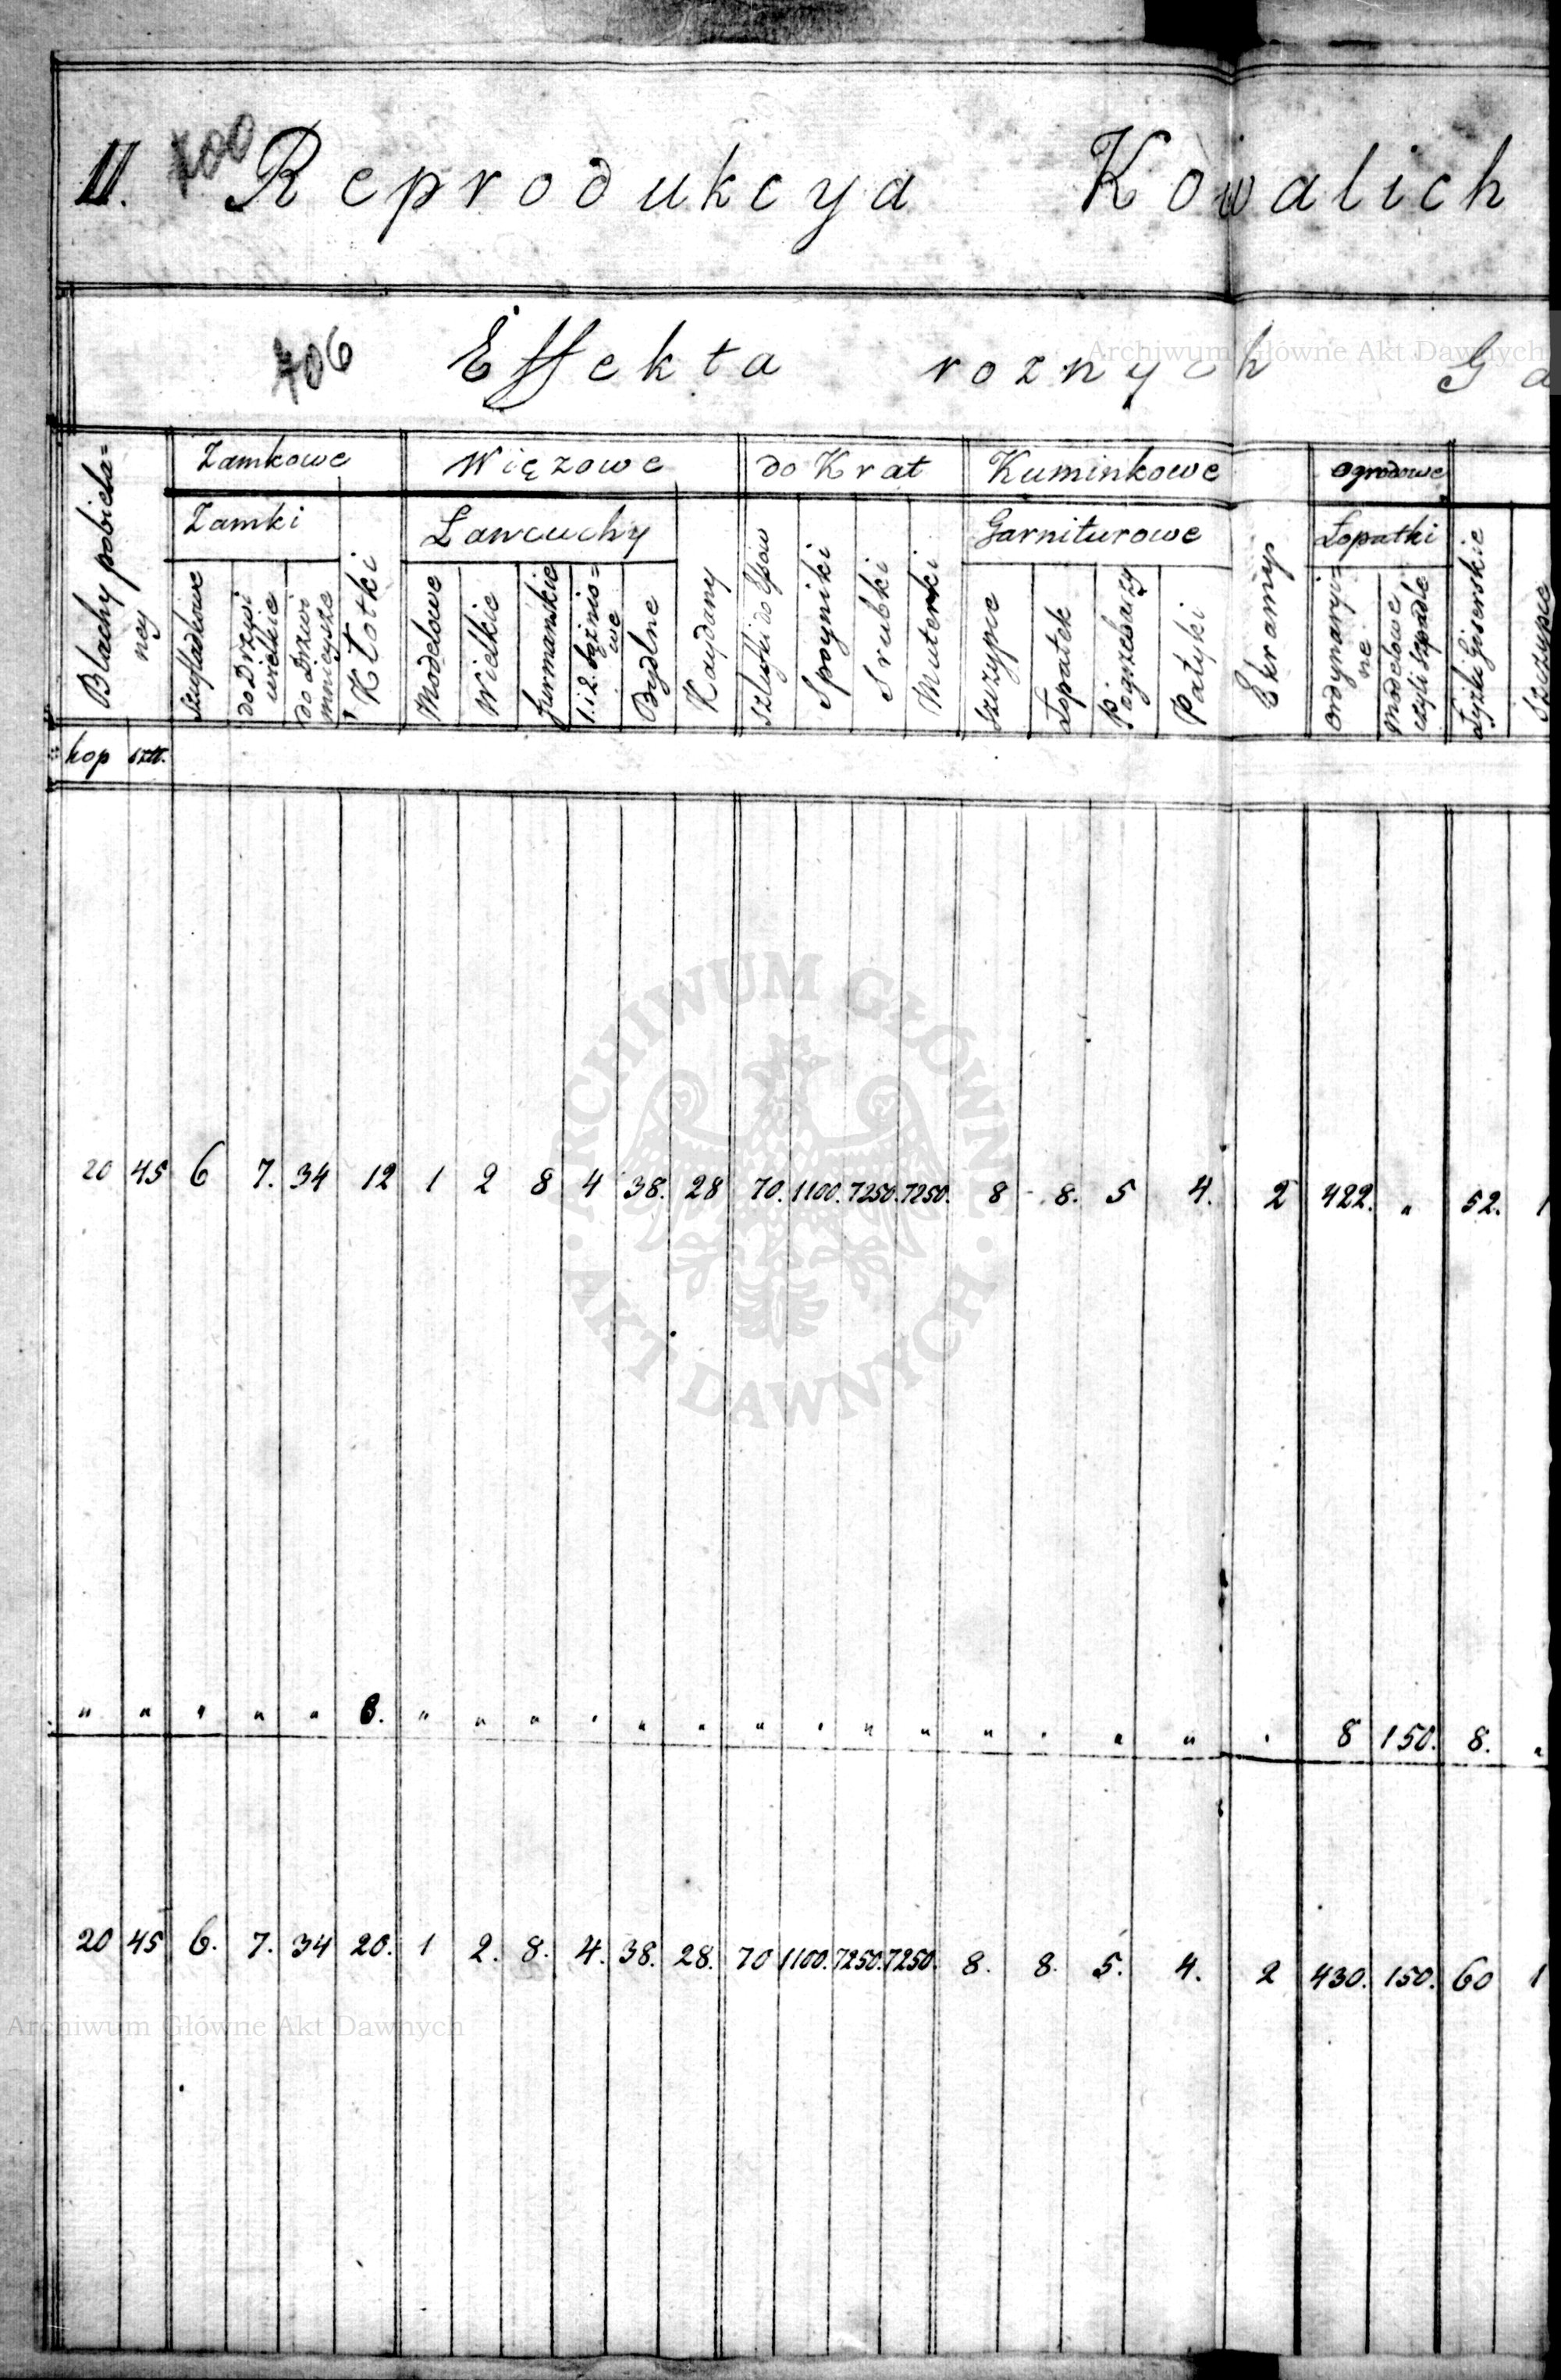 II. 400 Reprodukcya Kowalich
406 Effekta roznych Ga
Zamkowe Więzowe do Krat Kuminkowe Ogrodowe
Zamki Łancuchy Garniturowe Łopatki
Blachy pobiela=
ney
Szufladkowe
do Drzwi
wielkie
do Drzwi
mnieysze
Kłotki
Modelowe
Wielkie
Furmanskie
Bydlne
Kaydany
Spoyniki
Srubki
Muterki
Szczypce
Łopatek
Pogrzebaczy
Patyki
Ekramy
Ordynaryi=
ne
Modelowe
czyli Szpadle
Łyżki Giserskie
Szczypce
kop sztt.
20 45 6 7. 34 12 1 2 8 4 38. 28 70. 1100. 7250. 7250. 8 8. 5 4. 2 422. " 52. 1
" " " " " 8. " " " " " " " " " " " " " " " 8 150. 8. "
20 45 6. 7. 34 20. 1 2. 8. 4. 38. 28. 70 1100. 7250. 7250. 8. 8. 5. 4. 2 430. 150. 60 1
Archiwum Główne Akt Dawnych
ARCHIWUM GŁÓWNE
AKT DAWNYCH
Archiwum Główne Akt Dawnych